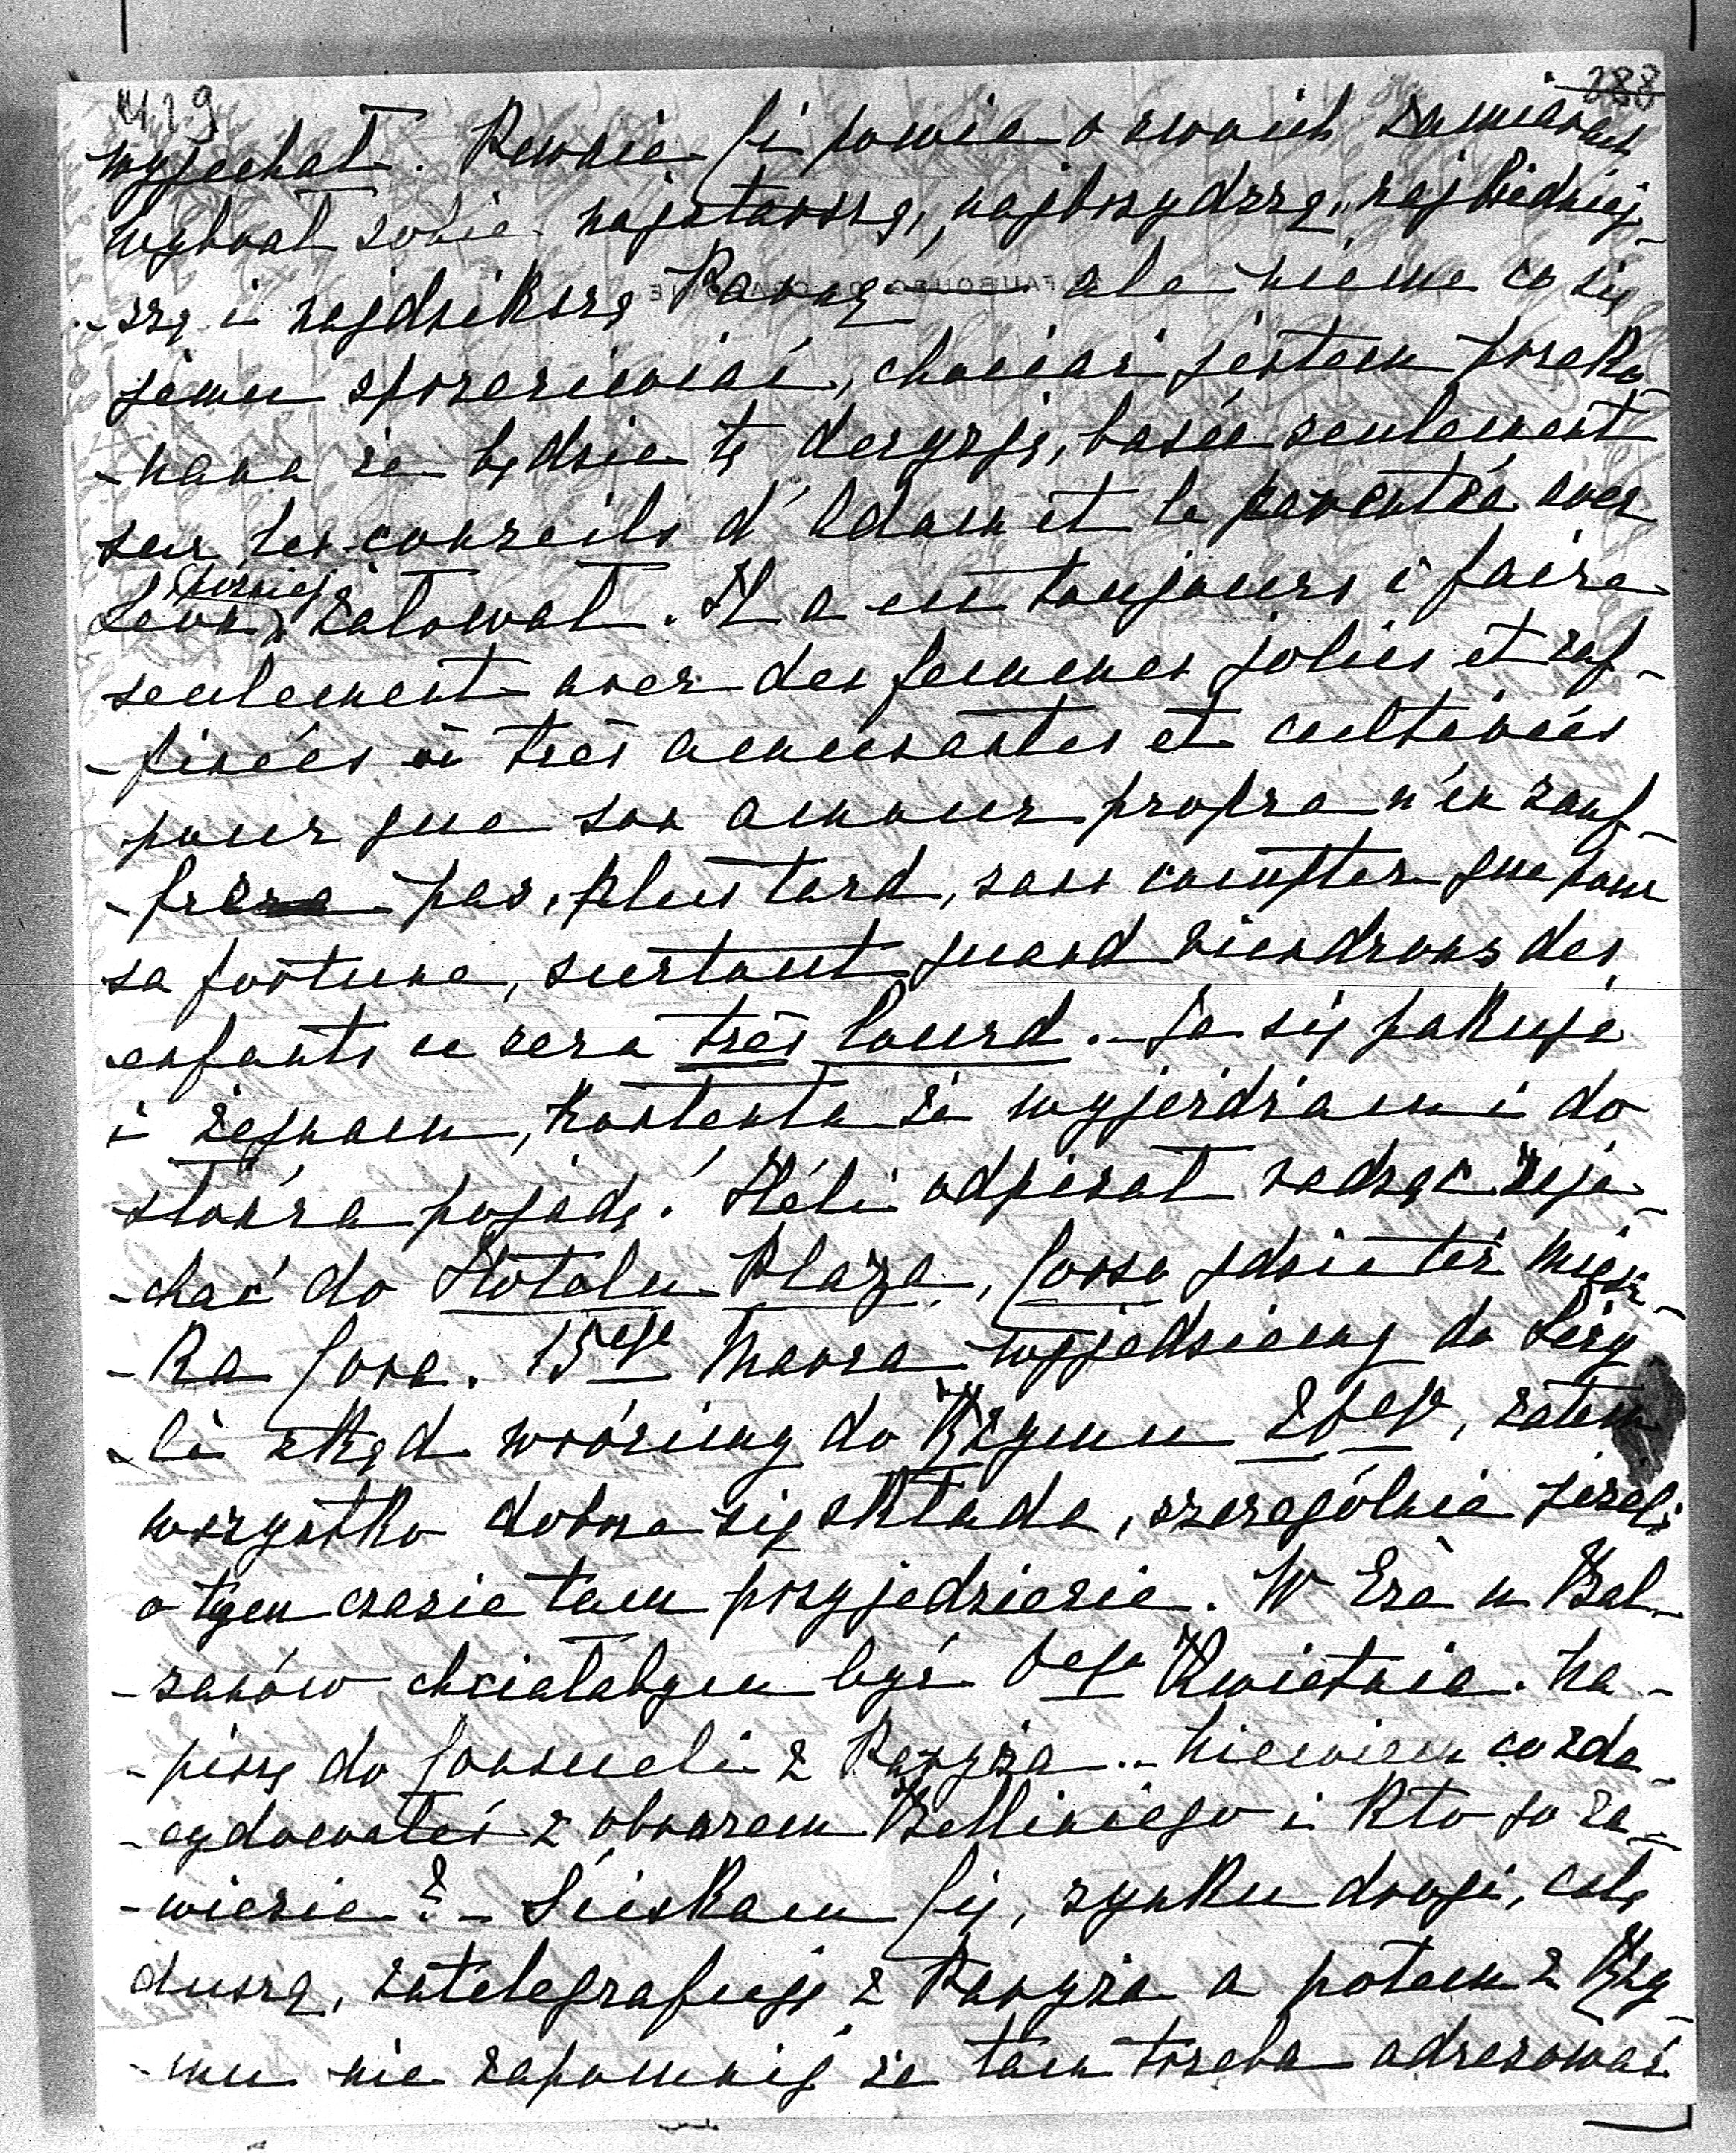 M29
288
wyjechał. Pewnie Ci powie o swoich zamiarach
wybrał sobie najstarszą, najbrzydszą, najbiedniej-
-szą i najdzikszą Pannę — ale nieme co się
jemu sprzeciwiać, chociaż jestem przeko-
-nana że będzie tę decyzję, basée seulement
sur les conseils d'Adam et la parentée avec
Léon, później żałował. Il a eu toujours à faire
seulement avec des femmes jolies et raf-
-finées très amusantes et cultivées
pour que son amour propre n'en souf-
-frera pas, plus tard, sans compter que pour
sa fortune, surtout quand viendrons des
enfants ce sera très lourd. – Ja się pakuję
i żegnam, kontenta że wyjeżdżam i do
słońca pojadę! Héli odpisał radząc zaje-
-chać do Hotelu Plaza, Corso gdzie też miesz-
-ka Cora. 15ego Marca wyjedziemy do Sicy-
-lii zkąd wrócimy do Rzymu 26ego, zatem
wszystko dobrze się składa, szczególnie jeżeli
o tym czasie tam przyjedziecie. W Eze u Bal-
-sanów chciałabym być 6ego Kwietnia. Na-
-piszę do Consueli z Paryża.. Niewiem co zde-
-cydowałeś z obrazem Belliniego i kto go za-
-wiezie? – Ściskam Cię, synku drogi, całą
duszą, zatelegrafuję z Paryża a potem z Rzy-
-mu nie zapomnij że tam trzeba adresować